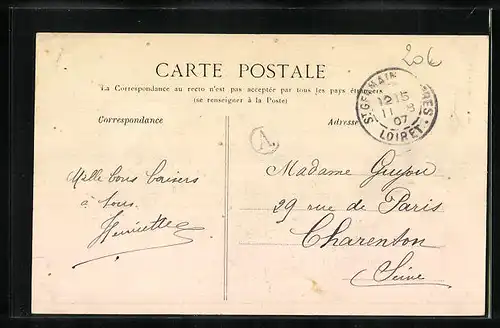 20€
CARTE POSTALE
La Correspondance au recto n'est pas acceptée par tous les pays étrangers
(se renseigner à la Poste)
Correspondance
Adresse
ST GERMAIN
12 15
11 -8
07
LOIRET
A
Mille bons baisers
à tous.
Henriette
Madame Guyou
29 rue de Paris
Charenton
Seine